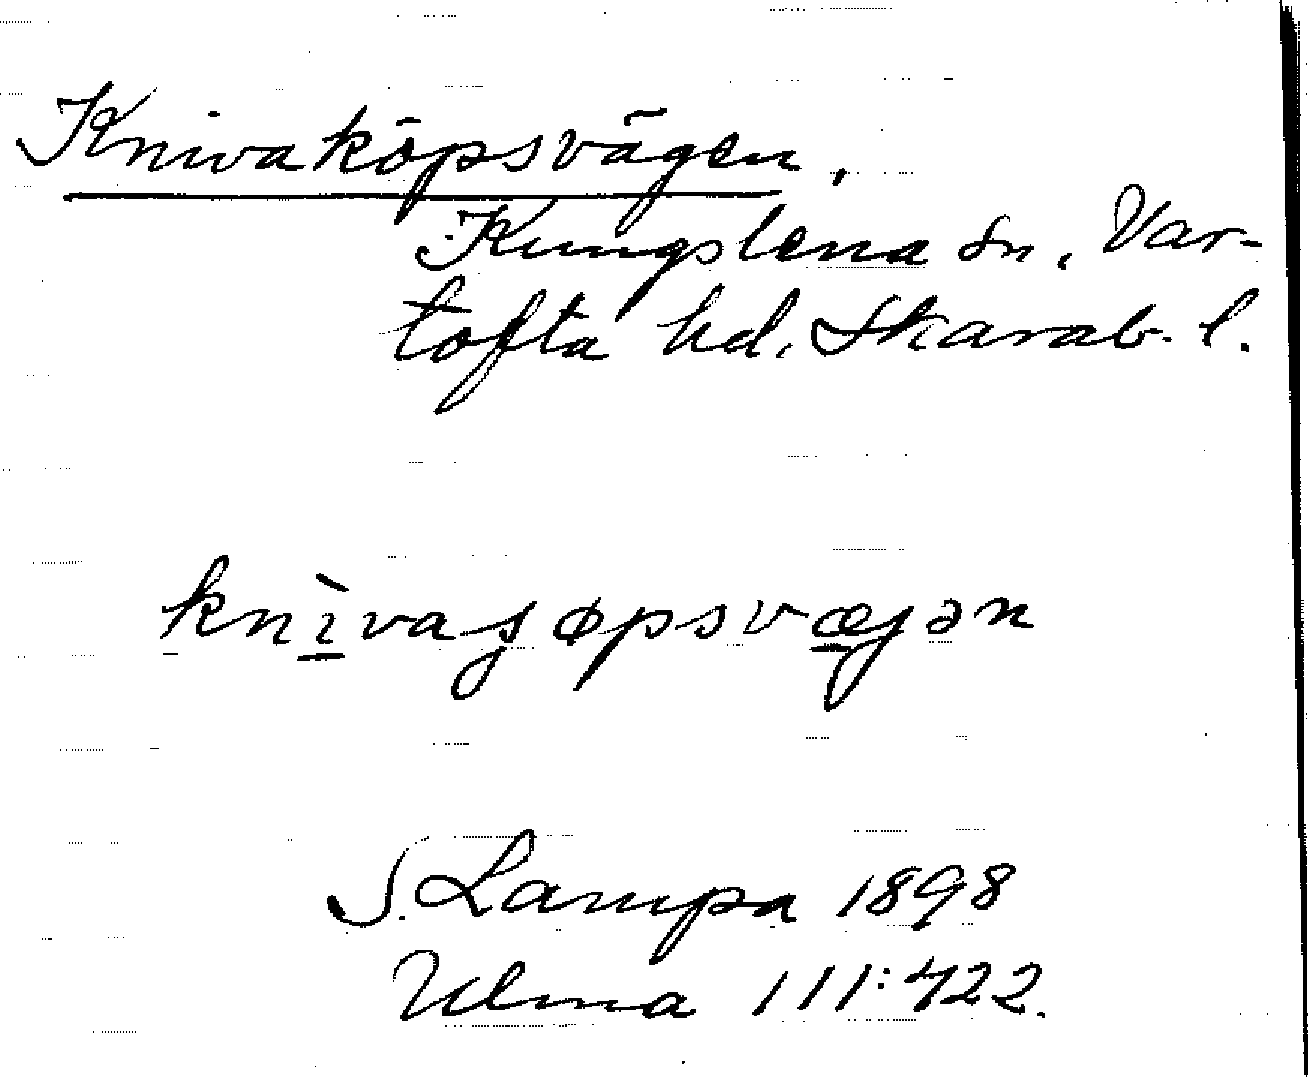 Knivaköpsvägen,
Kungslena sn, Var-
tofta hd, Skarab. l.
knìvaȿøpsvæjən
S. Lampa 1898
Ulma 111:422.